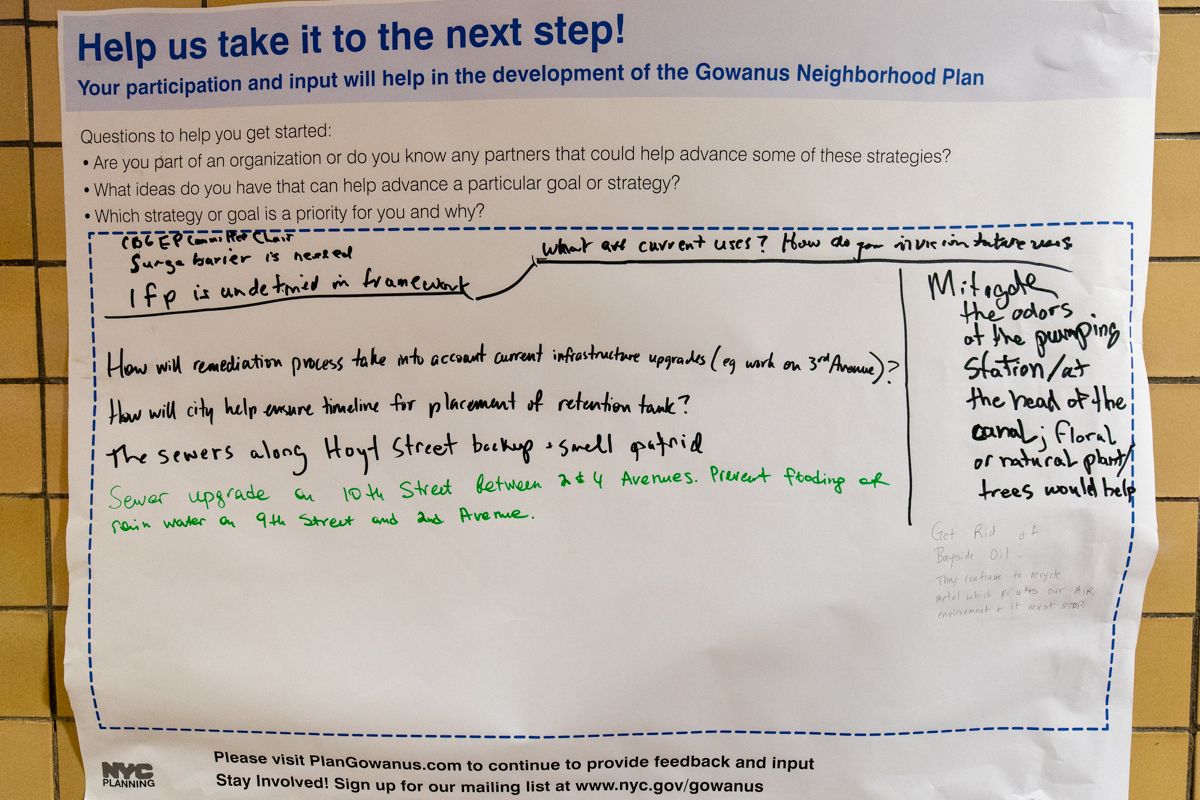 Help us take it to the next step!
Your participation and input will help in the development of the Gowanus Neighborhood Plan
Questions to help you get started:
• Are you part of an organization or do you know any partners that could help advance some of these strategies?
• What ideas do you have that can help advance a particular goal or strategy?
• Which strategy or goal is a priority for you and why?
CB6 EP Committee Chair
Surge barier is needed
Ifp is undefined in framework
What are current uses? How do you invision future uses
How will remediation process take into account current infrastructure upgrades (eg work on 3rd Avenue)?
How will city help ensure timeline for placement of retention tank?
The sewers along Hoyt Street backup + smell putrid
Sewer upgrade on 10th Street between 2 & 4 Avenues. Prevent flooding of
rain water on 9th Street and 2nd Avenue.
Mitigate
the odors
at the pumping
station/at
the head of the
canal; floral
or natural plant/
trees would help
Get Rid of
Bayside Oil -
They continue to recycle
metal which polutes our AIR,
environment + it must STOP
NYC
PLANNING
Please visit PlanGowanus.com to continue to provide feedback and input
Stay Involved! Sign up for our mailing list at www.nyc.gov/gowanus